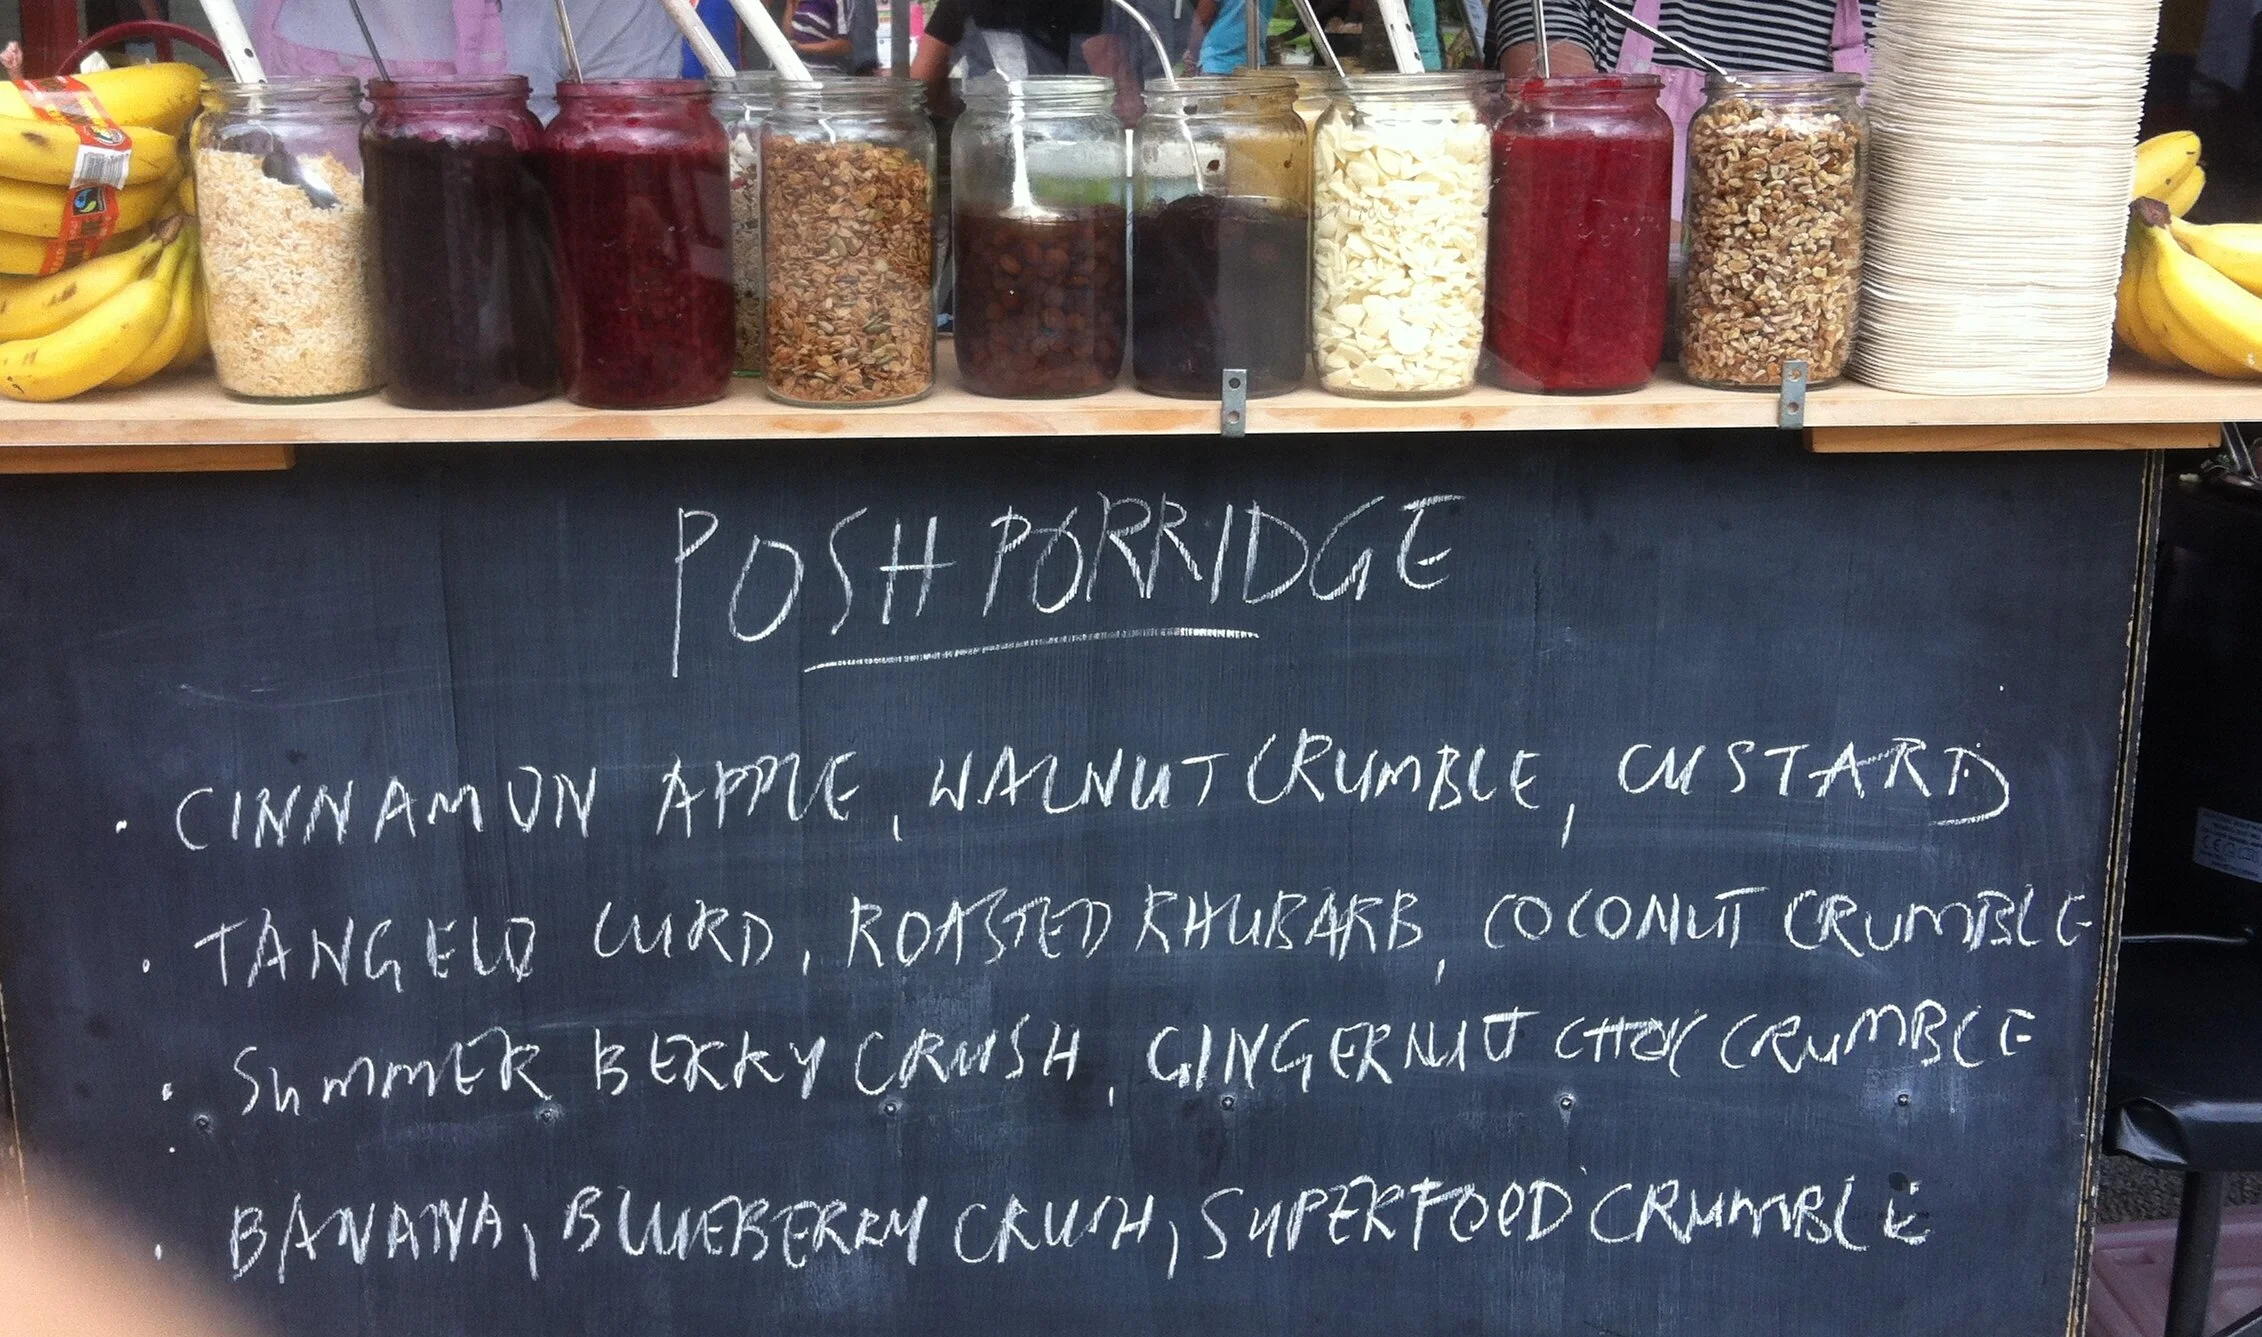 POSH PORRIDGE
· CINNAMON APPLE, WALNUT CRUMBLE, CUSTARD
· TANGELO CURD, ROASTED RHUBARB, COCONUT CRUMBLE
· SUMMER BERRY CRUSH, GINGERNUT CHOC CRUMBLE
· BANANA, BLUEBERRY CRUSH, SUPERFOOD CRUMBLE